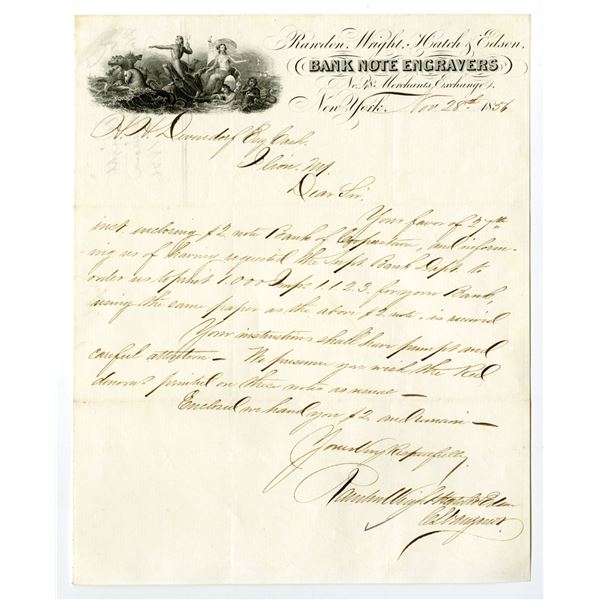 Rawdon, Wright, Hatch & Edson,
BANK NOTE ENGRAVERS
No. 48 Merchants Exchange,
New York, Nov 28th 1856
H. H. Devendorf Esq Cash.
Ilion, NY
Dear Sir,
Your favor of 27th
inst. enclosing $2 note Bank of Cooperstown, and inform-
ing us of having requested the Supt. Bank Dept. to
order us to print 1.000 Imps 1.1.2.3, for your Bank,
using the same paper as the above $2 note, is received
Your instructions shall have prompt and
careful attention — We presume you wish the Red
denoms printed on these notes as usual —
Enclosed we hand you $2 and remain —
Yours Very Respectfully
Rawdon Wright Hatch & Edson